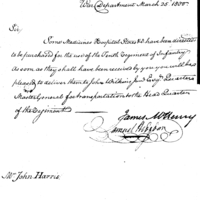 War Department March 25 1800
Sir,
Some Medicines Hospital Stores &c have been directed
to be purchased for the use of the Tenth Regiment of Infantry
as soon as they shall have been received by you you will be
pleased to deliver them to John Wilkins Junr Esqr Quarter
Master General for transportation to the Head Quarters
of the Regiment
James McHenry
Samuel Hodgdon
Mr John Harris